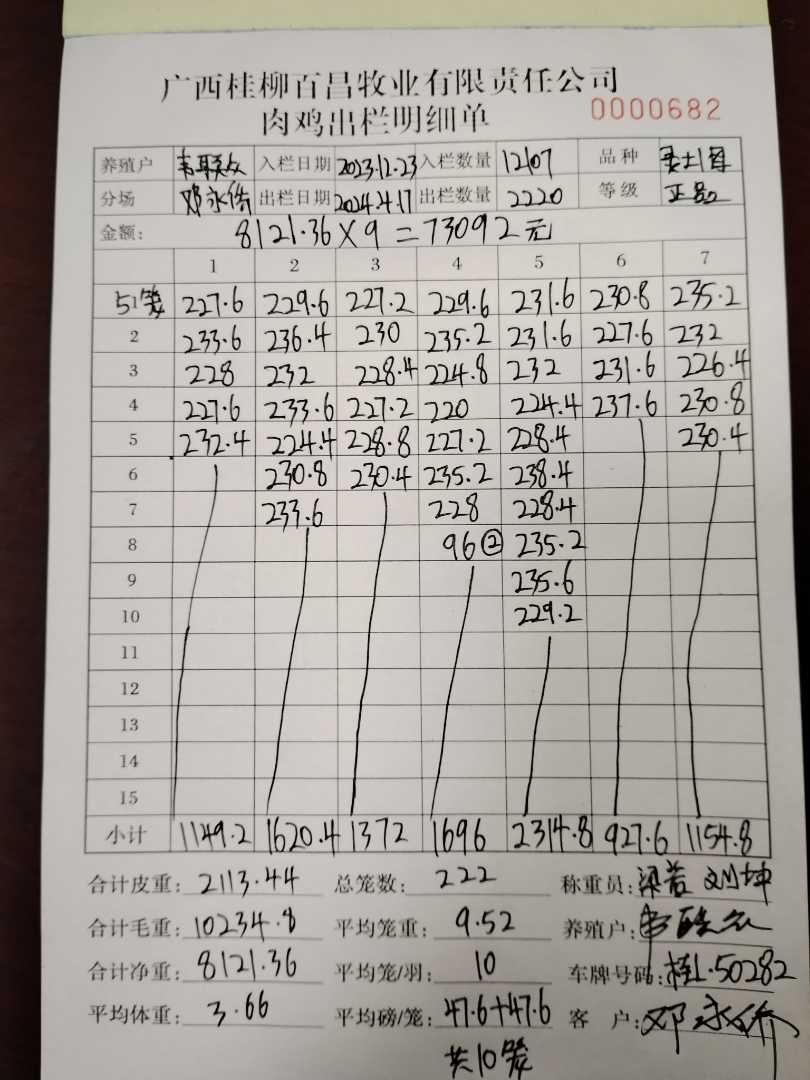 广西桂柳百昌牧业有限责任公司
肉鸡出栏明细单 0000682
养殖户 韦联众 入栏日期 2023.12.23 入栏数量 12107 品种
分场 邓永侨 出栏日期 2024.4.17 出栏数量 2220 等级 正品
金额: 8121.36×9=73092元
1 2 3 4 5 6 7
5笼 227.6 229.6 227.2 229.6 231.6 230.8 235.2
2 233.6 236.4 230 235.2 231.6 227.6 232
3 228 232 228.4 224.8 232 231.6 226.4
4 227.6 233.6 227.2 220 224.4 237.6 230.8
5 232.4 224.4 228.8 227.2 228.4 230.4
6 230.8 230.4 235.2 238.4
7 233.6 228 228.4
8 96② 235.2
9 235.6
10 229.2
11
12
13
14
15
小计 1149.2 1620.4 1372 1696 2314.8 927.6 1154.8
合计皮重: 2113.44 总笼数: 222 称重员: 刘坤
合计毛重: 10234.8 平均笼重: 9.52 养殖户: 韦联众
合计净重: 8121.36 平均笼/羽: 10 车牌号码: 桂L·50282
平均体重: 3.66 平均磅/笼: 47.6+47.6 客户: 邓永侨
共10笼